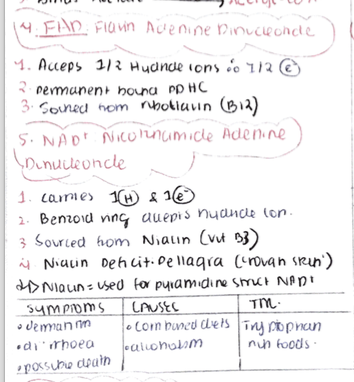 4. FAD Flavin Adenine Dinucleotide
1. Acceps 1/2 Hydride ions
2. permanent bound PDHC
3. Sourced from riboflavin (B12)
5. NAD+ Nicotinamide Adenine
Dinucleotide
1. carries 1(H) & 1(e-)
2. Benzoid ring accepts hydride ion.
3 Sourced from Niacin (Vit B3)
4 Niacin Deficit-Pellagra (crovan skin)
Niacin = used for pyramidine struct NAD+
Symptoms Causes TM.
• dermatitis • combined diets Tryptophan
• diarrhoea • alcoholism rich foods.
• possible death